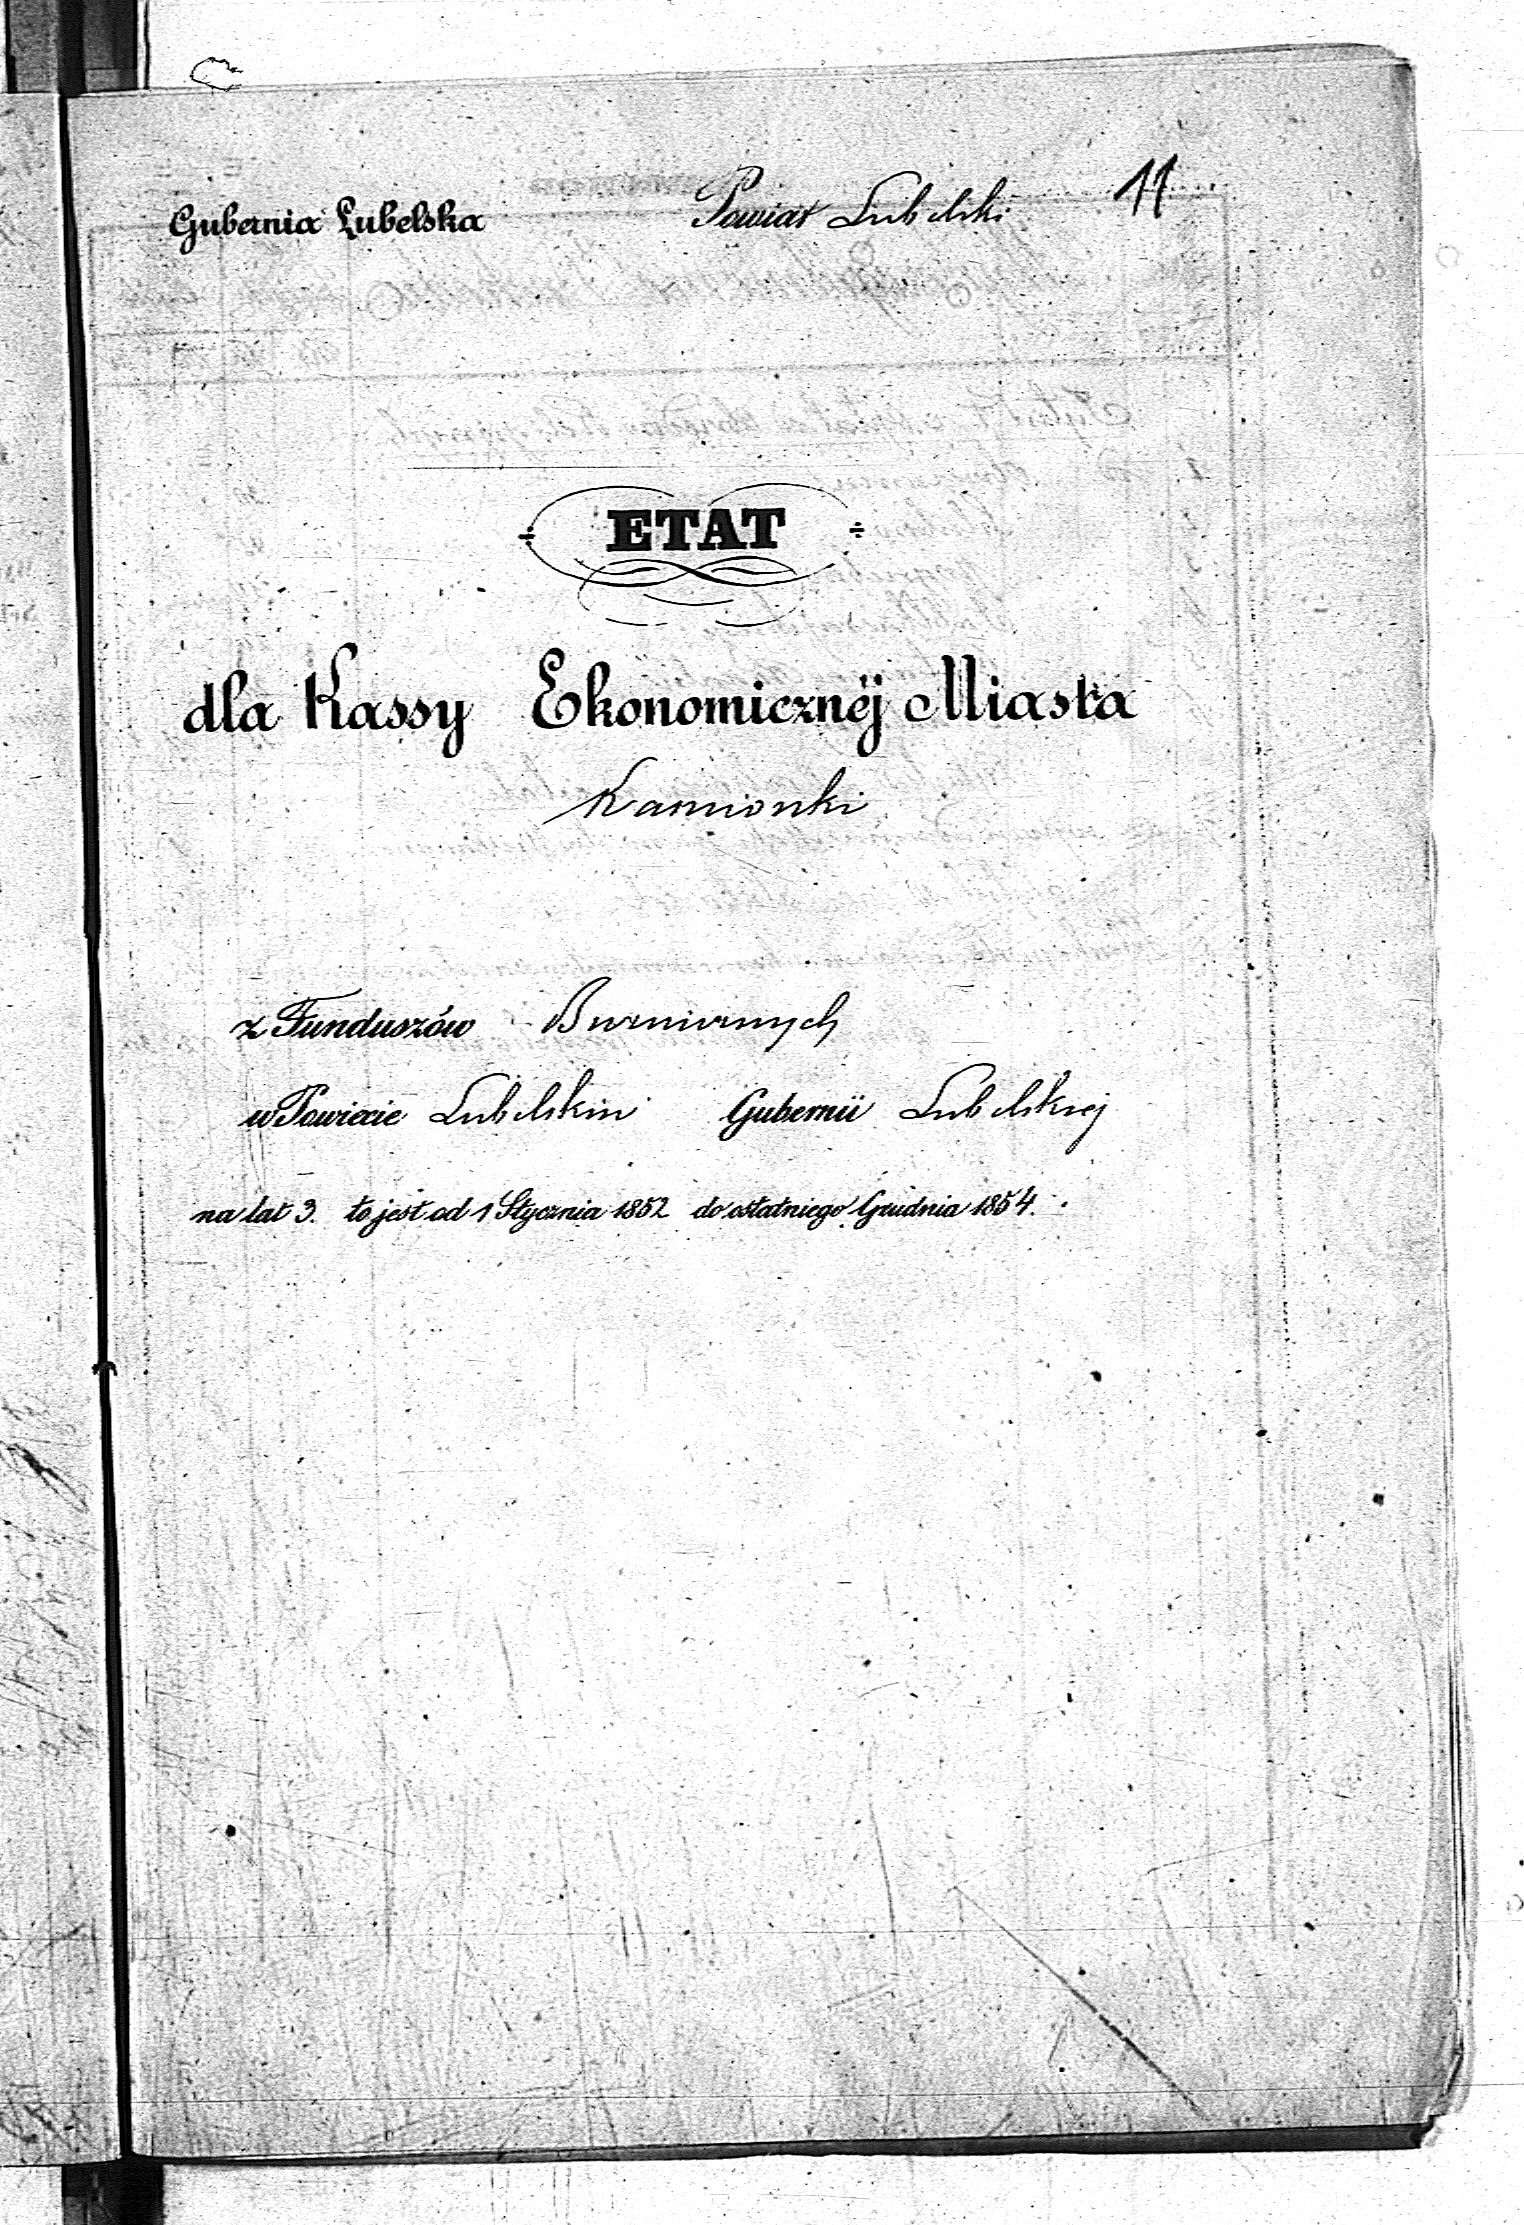 11
Gubernia Lubelska Powiat Lubelski
ETAT
dla Kassy Ekonomicznéj Miasta
Kamionki
z Funduszów
w Powiecie Lubelskim Gubernii Lubelskiej
na lat 3. to jest od 1 Stycznia 1852 do ostatniego Grudnia 1854.